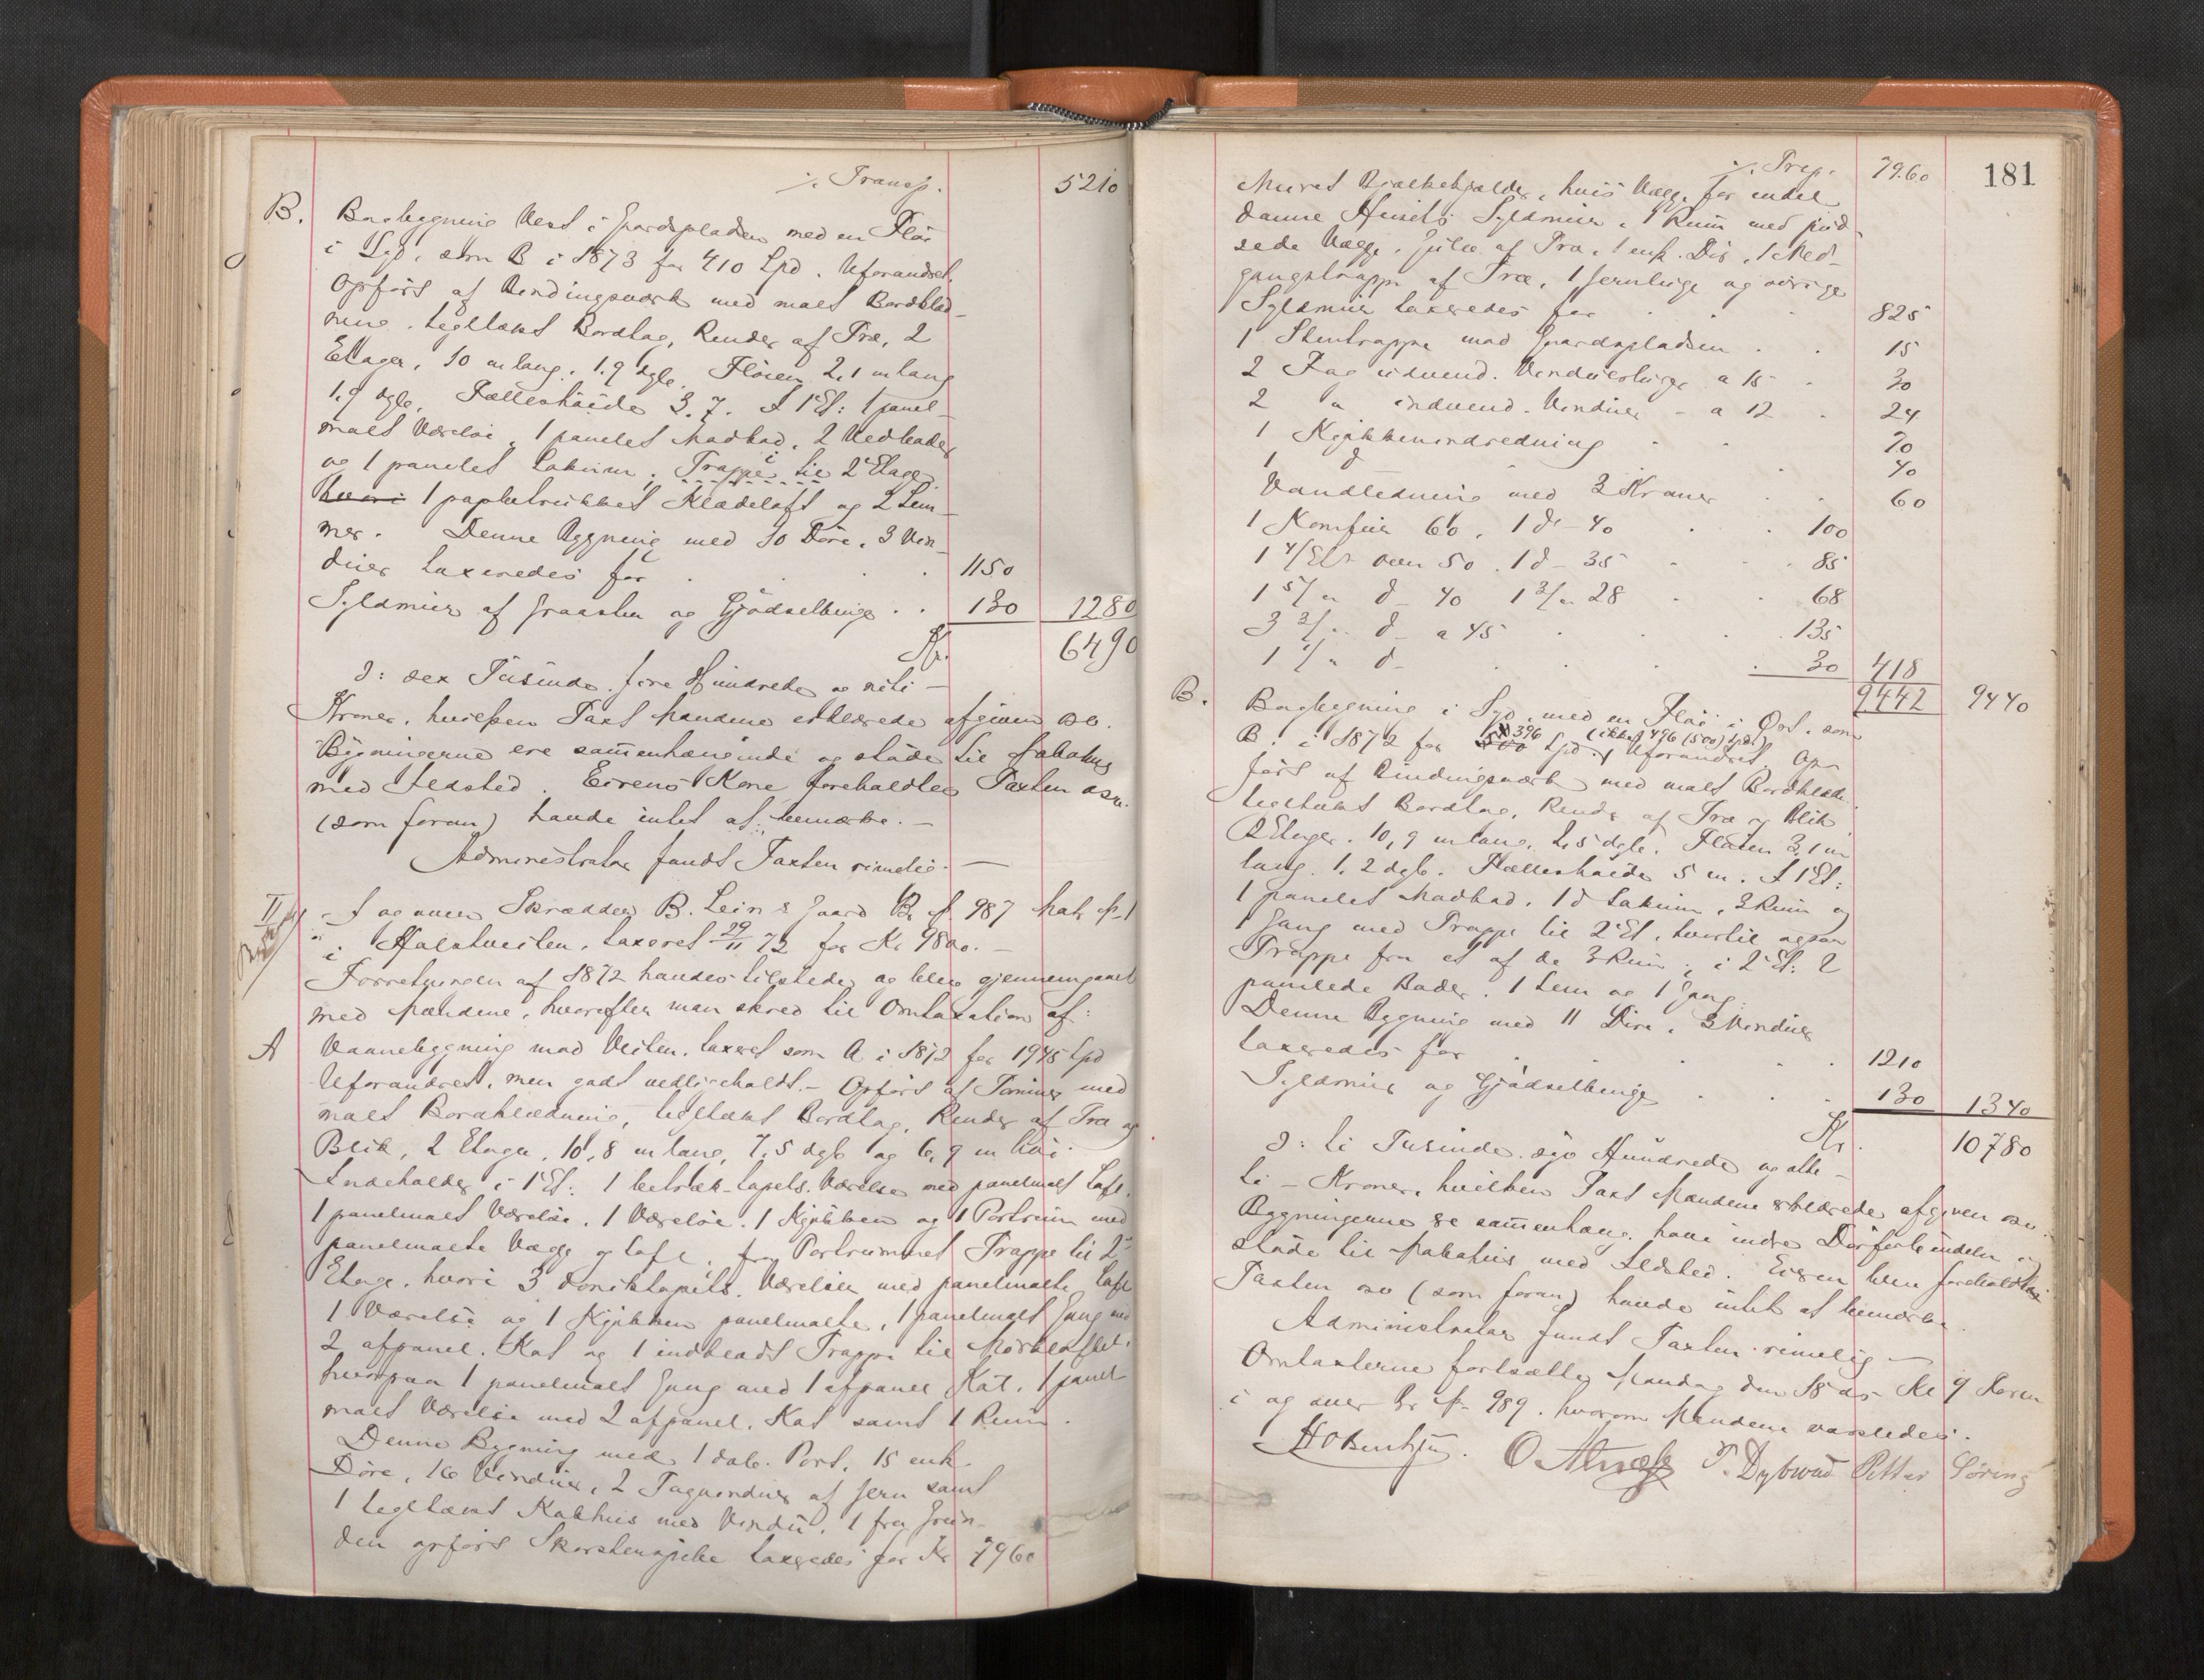 ./. Transp. 5210
B. Bagbygning Vest i Gaardspladsen med en Flöi
i Syd, som B i 1873 for 410 Spd. Uforandret.
Opfört af Bindingsværk med malt Bordklæd-
ning, tegltækt Bordtag, Render af Træ, 2
Etager, 10 m lang, 1.9 dyb. Flöien 2,1 m lang
1,9 dyb. Fælleshöide 3.7. I 1 Et: 1 panel-
malt Værelse, 1 panelet Madbod, 2 Vedboder
og 1 panelet Lokum. Trappe til 2 Etage
hvori 1 papbetrukket Klædeloft og 2 Lem-
mer. Denne Bygning med 10 Döre, 3 Vin-
duer taxeredes for 1150
Syldmur af Graasten og Gjödselbinge . . 130 1280
Kr. 6490
ɔ: sex Tusinde, fire Hundrede og niti -
Kroner, hvilken Taxt Mændene erklærede afgiven osv.
Bygningerne ere sammenhængende og støde til Nabohus
med Ildsted. Eierens Kone foreholdtes Taxten osv.
(som foran) havde intet at bemærke. -
Administrator fandt Taxten rimelig. -
II I og over Skrædder B. Leins Gaard Br № 987 Mat №
i Hulstveiten, taxeret 29/11 72 for Kr 9800. -
Forretningen af 1872 havdes tilstede og blev gjennemgaaet
med Mændene, hvorefter man skred til Omtaxation af:
A Vaanebygning mod Veiten, taxeret som A i 1872 for 1945 Spd
Uforandret, men godt vedligeholdt. - Opfört af Tömmer med
malt Bordklædning, tegltækt Bordtag, Render af Træ og
Blik, 2 Etager, 10,8 m lang, 7,5 dyb og 6,9 m höi.
Indeholder i 1 Et: 1 betræk-tapets. Værelse med panelmalt Loft,
1 panelmalt Værelse, 1 Værelse, 1 Kjökken og 1 Portrum med
panelmalte Vægge og Loft, fra Portrummet Trappe til 2
Etage, hvori 3 tapets. Værelser med panelmalte Loft
1 Værelse og 1 Kjökken panelmalte, 1 panelmalt Gang med
2 afpanel. Kot og 1 indklædt Trappe til Mörkeloftet,
hvorpaa 1 panelmalt Gang med 1 afpanel Kot, 1 panel
malt Værelse med 2 afpanel. Kot samt 1 Rum.
Denne Bygning med 1 dob. Port, 15 enk.
Döre, 16 Vinduer, 2 Tagvinduer af Jern samt
1 tegltækt Kakhus med Vindu, 1 fra Grun-
den opfört Skorstenspibe taxeredes for Kr 7960
./. Trsp. 7960 181
Muret Bjælkekjelder, hvis Vægge for endel
danne Husets Syldmur, 1 Rum med pud-
sede Vægge, Gulv af Træ, 1 enk. Dör, 1 Ned-
gangstrappe af Træ, 1 Jernluge og övrige
Syldmur taxeredes for 825
1 Stentrappe mod Gaardspladsen . . 15
2 Fag udvend. Vinduesluger a 15 . 30
2 " indvend. Vinduer - a 12 . 24
1 Kjökkenindredning 70
1 d 40
Vandledning med 3 Kraner . . 60
1 Komfur 60, 1 do - 40 . . 100
1 4/Et oven 50, 1 d - 35 . . 85
1 5/" d - 40 1 2/" 28 . . 68
3 3/" d - a 45 . . 135
1 1/" d - . . 30 418
9442 9440
B. Bagbygning i Syd, med en Flöi i Öst, som
B. i 1872 for 500 396 (ikke 496 (500) Spd.) Spd. Uforandret. Op-
fört af Bindingsværk med malt Bordklædn.
tegltækt Bordtag, Render af Træ og Blik
2 Etager, 10,9 m lang, 2,5 dyb. Flöien 3,1 m
lang, 1,2 dyb. Fælleshöide 5 m. I 1 Et:
1 panelet Madbod, 1 d Lokum, 3 Rum og
1 Gang med Trappe til 2 Et, hvortil ogsaa
Trappe fra et af de 3 Rum; i 2 Et: 2
panelede Boder, 1 Lem og 1 Gang.
Denne Bygning med 11 Döre, 3 Vinduer
taxeredes for 1210
Syldmur og Gjödselbinge . . 130 1340
Kr. 10780
ɔ: ti Tusinde, syv Hundrede og otte-
ti - Kroner, hvilken Taxt Mændene erklærede afgiven osv.
Bygningerne ere sammenhæng. have indre Dörforbindelse og
støde til Nabohus med Ildsted. Eieren blev foreholdt
Taxten osv (som foran) havde intet at bemærke.
Administrator fandt Taxten rimelig -
Omtaxterne fortsættes Mandag den 18 ds Kl 9 Form
i og over Br № 989, hvorom Mændene varsledes.
O. Alnæs T. Dybwad Petter Söring